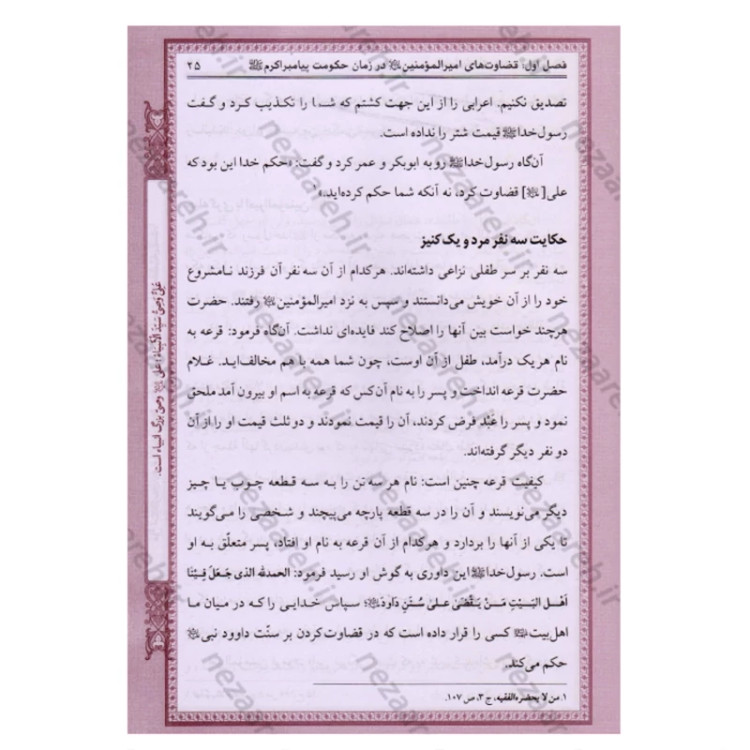 فصل اول: قضاوت‌های امیرالمؤمنین ﷷ در زمان حکومت پیامبر اکرم ﷺ ۲۵
تصدیق نکنیم. اعرابی را از این جهت کشتم که شما را تکذیب کرد و گفت
رسول خدا ﷺ قیمت شتر را نداده است.
آن‌گاه رسول خدا ﷺ رو به ابوبکر و عمر کرد و گفت: «حکم خدا این بود که
علی [ﷷ] قضاوت کرد، نه آنکه شما حکم کرده‌اید.»۱
حکایت سه نفر مرد و یک کنیز
سه نفر بر سر طفلی نزاعی داشته‌اند. هرکدام از آن سه نفر آن فرزند نامشروع
خود را از آن خویش می‌دانستند و سپس به نزد امیرالمؤمنین ﷷ رفتند. حضرت
هرچند خواست بین آنها را اصلاح کند فایده‌ای نداشت. آن‌گاه فرمود: قرعه به
نام هر یک درآمد، طفل از آن اوست، چون شما همه با هم مخالف‌اید. غلام
حضرت قرعه انداخت و پسر را به نام آن کس که قرعه به اسم او بیرون آمد ملحق
نمود و پسر را عَبْد فرض کردند، آن را قیمت نمودند و دو ثلث قیمت او را از آن
دو نفر دیگر گرفته‌اند.
کیفیت قرعه چنین است: نام هر سه تن را به سه قطعه چوب یا چیز
دیگر می‌نویسند و آن را در سه قطعه پارچه می‌پیچند و شخصی را می‌گویند
تا یکی از آنها را بردارد و هرکدام از آن قرعه به نام او افتاد، پسر متعلّق به او
است. رسول خدا ﷺ این داوری به گوش او رسید فرمود: الحمدلله الذی جَعَلَ فِینَا
أهْلَ البَیْتِ مَنْ یَقْضی عَلیٰ سُنَنِ داودَ ﷷ؛ سپاس خدایی را که در میان ما
اهل‌بیت ﷷ کسی را قرار داده است که در قضاوت کردن بر سنّت داوود نبی ﷷ
حکم می‌کند.
۱. من لا یحضره الفقیه، ج ۳، ص ۱۰۷.
عَلِیٌّ وَصِیُّ سَیِّدِ الْأَنْبِیَاءِ؛ علی ﷷ وصی بزرگ انبیاء است.
nezaareh.ir